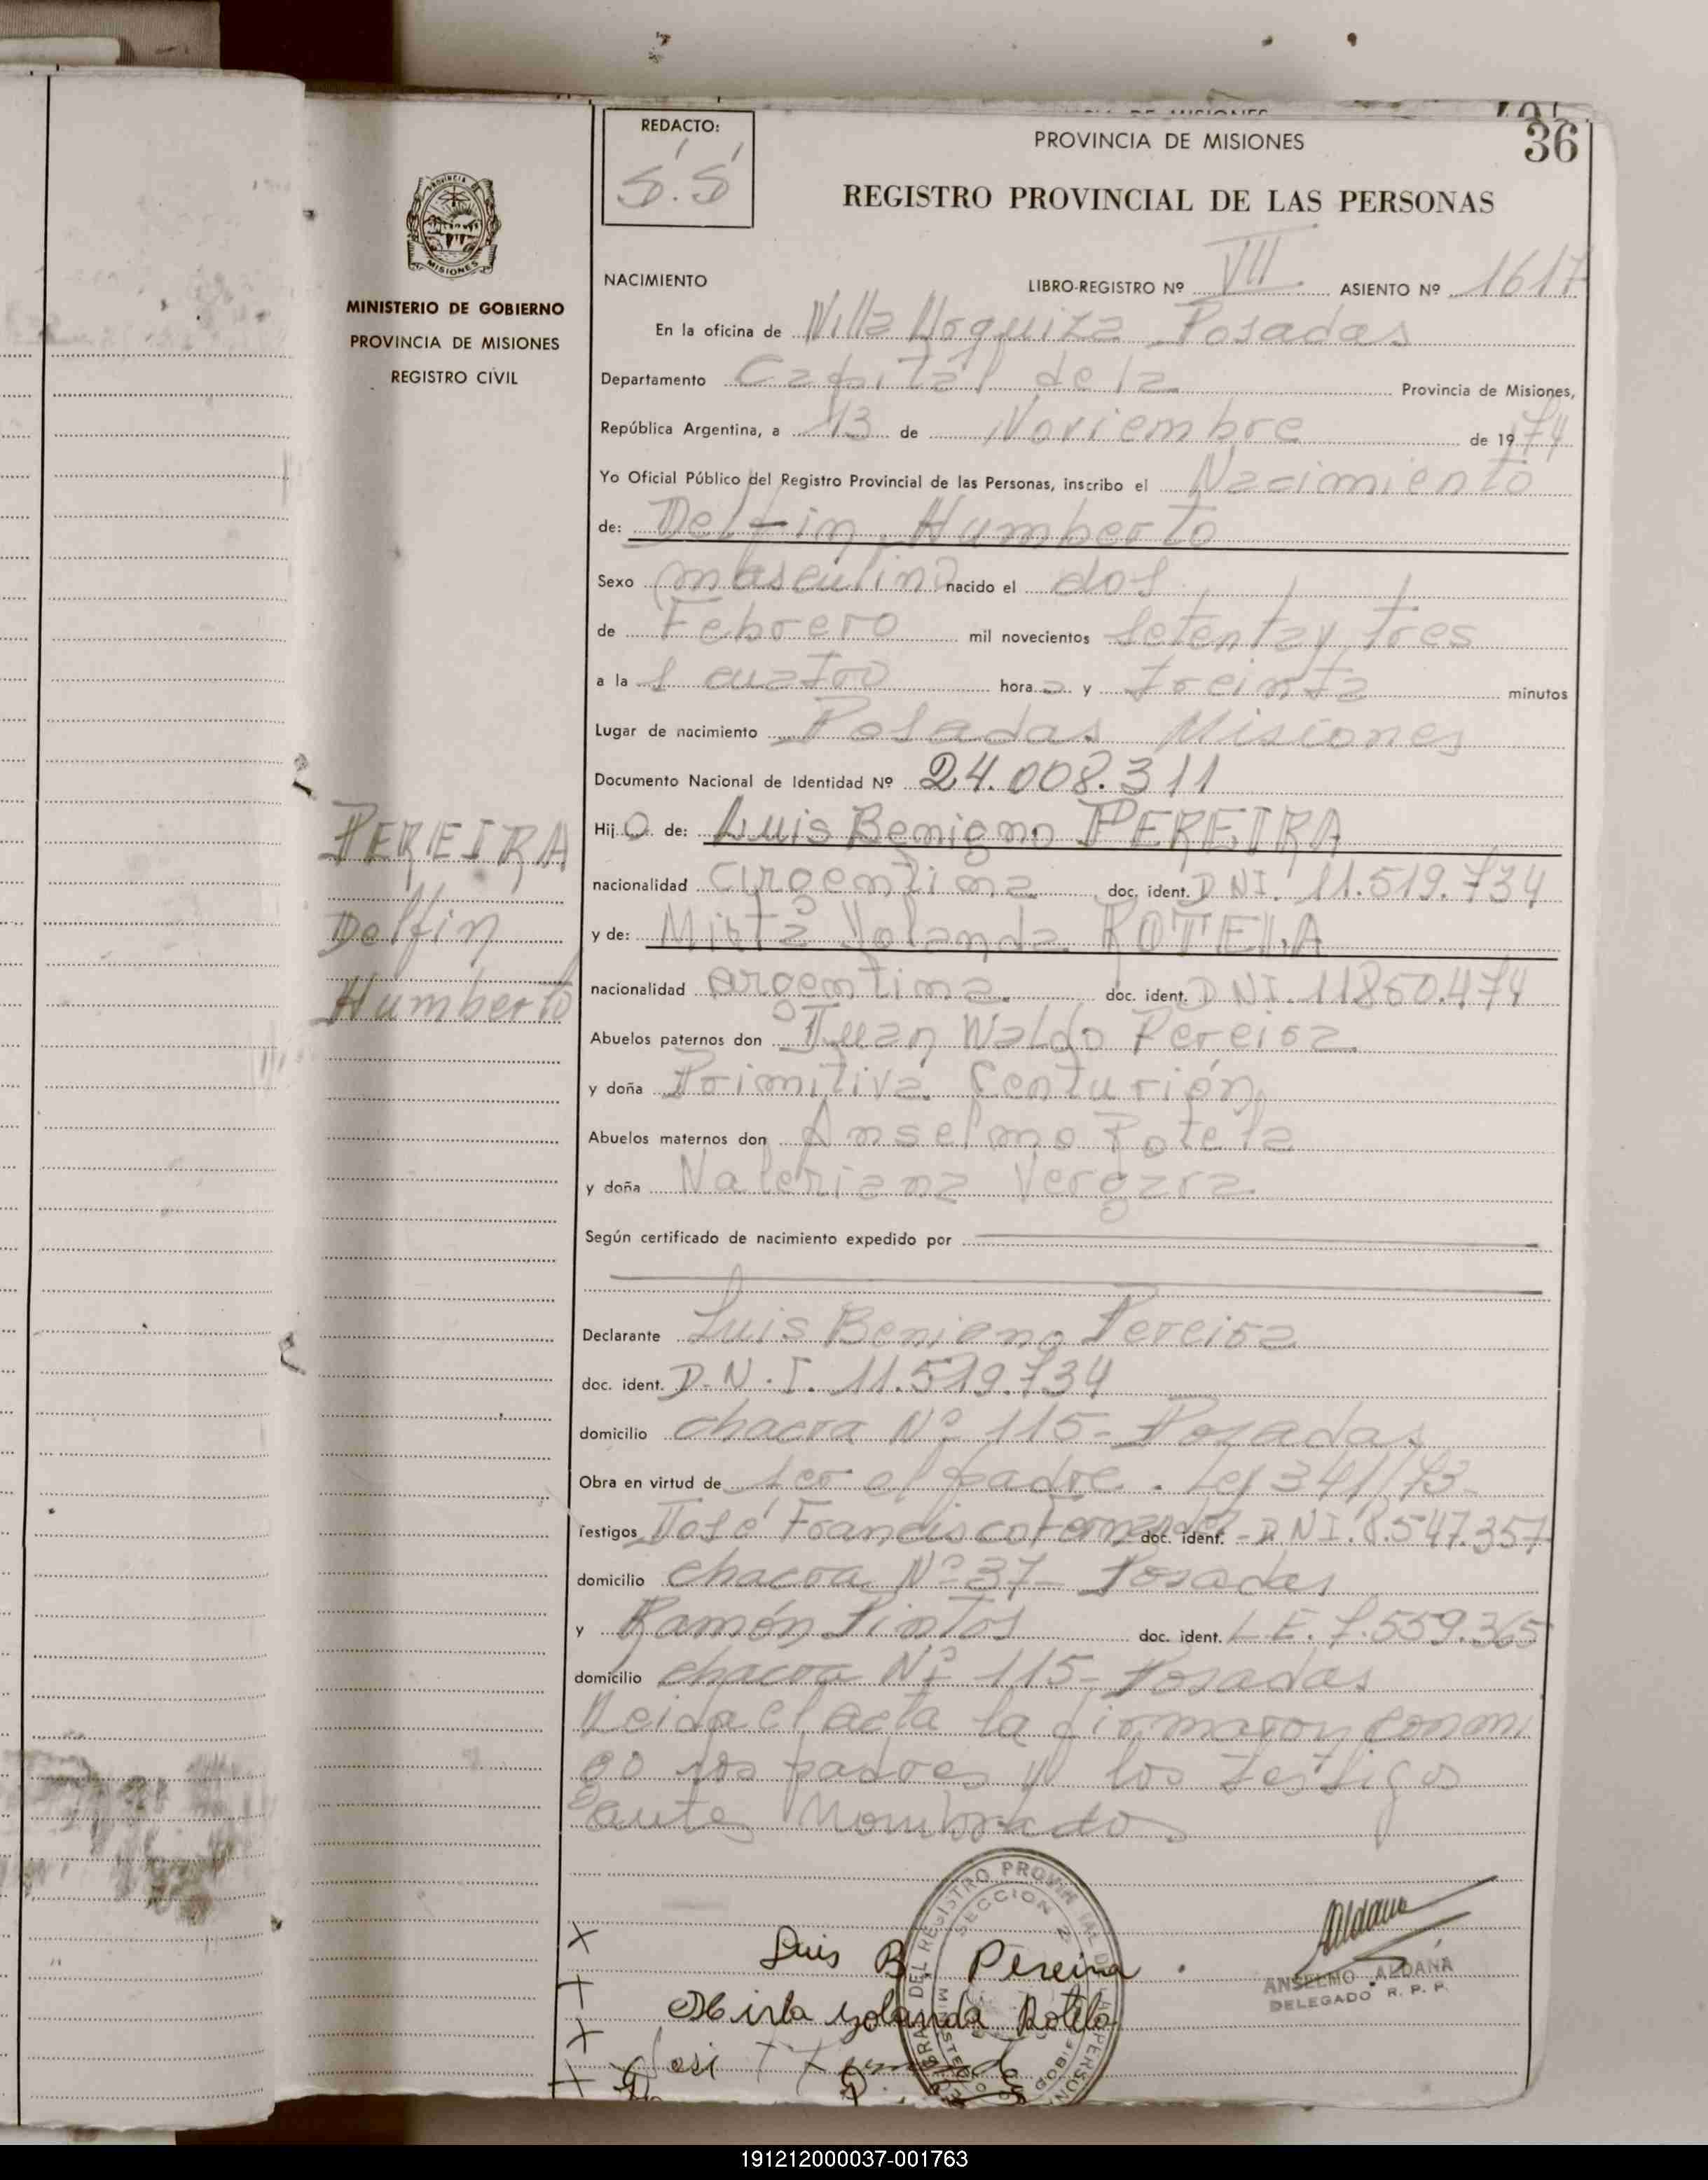 36
REDACTO:
S.S
PROVINCIA DE MISIONES
REGISTRO PROVINCIAL DE LAS PERSONAS
PROVINCIA
MISIONES
MINISTERIO DE GOBIERNO
PROVINCIA DE MISIONES
REGISTRO CIVIL
NACIMIENTO LIBRO-REGISTRO Nº VII ASIENTO Nº 1617
En la oficina de Villa Urquiza Posadas
Departamento Capital de la Provincia de Misiones,
República Argentina, a 13 de Noviembre de 1974
Yo Oficial Público del Registro Provincial de las Personas, inscribo el Nacimiento
de: Delfin Humberto
Sexo masculino nacido el dos
de Febrero mil novecientos setenta y tres
a las cuatro horas y treinta minutos
Lugar de nacimiento Posadas Misiones
Documento Nacional de Identidad Nº 24.008.311
Hijo de: Luis Benigno PEREIRA
PEREIRA
Delfin
Humberto
nacionalidad argentina doc. ident. DNI. 11.519.734
y de: Mirta Yolanda ROTELA
nacionalidad argentina doc. ident. DNI. 11850.474
Abuelos paternos don Juan Waldo Pereira
y doña Primitiva Centurión
Abuelos maternos don Anselmo Rotela
y doña Valeriana Vergara
Según certificado de nacimiento expedido por
Declarante Luis Benigno Pereira
doc. ident. D.N.I. 11.519.734
domicilio chacra Nº 115- Posadas
Obra en virtud de ser el padre. Ley 341/73-
Testigos José Francisco Fernandez doc. ident. D.NI. 8.547.357
domicilio chacra Nº 37- Posadas
y Ramón Pintos doc. ident. L.E. 7.559.365
domicilio chacra Nº 115- Posadas
Leida el acta la firmaron conmi
go los padres y los testigos
antes Nombrados
Luis B. Pereira
Mirta Yolanda Rotela
José F Fernandez
Aldana
ANSELMO ALDANA
DELEGADO R. P. P.
SECCION 2
191212000037-001763